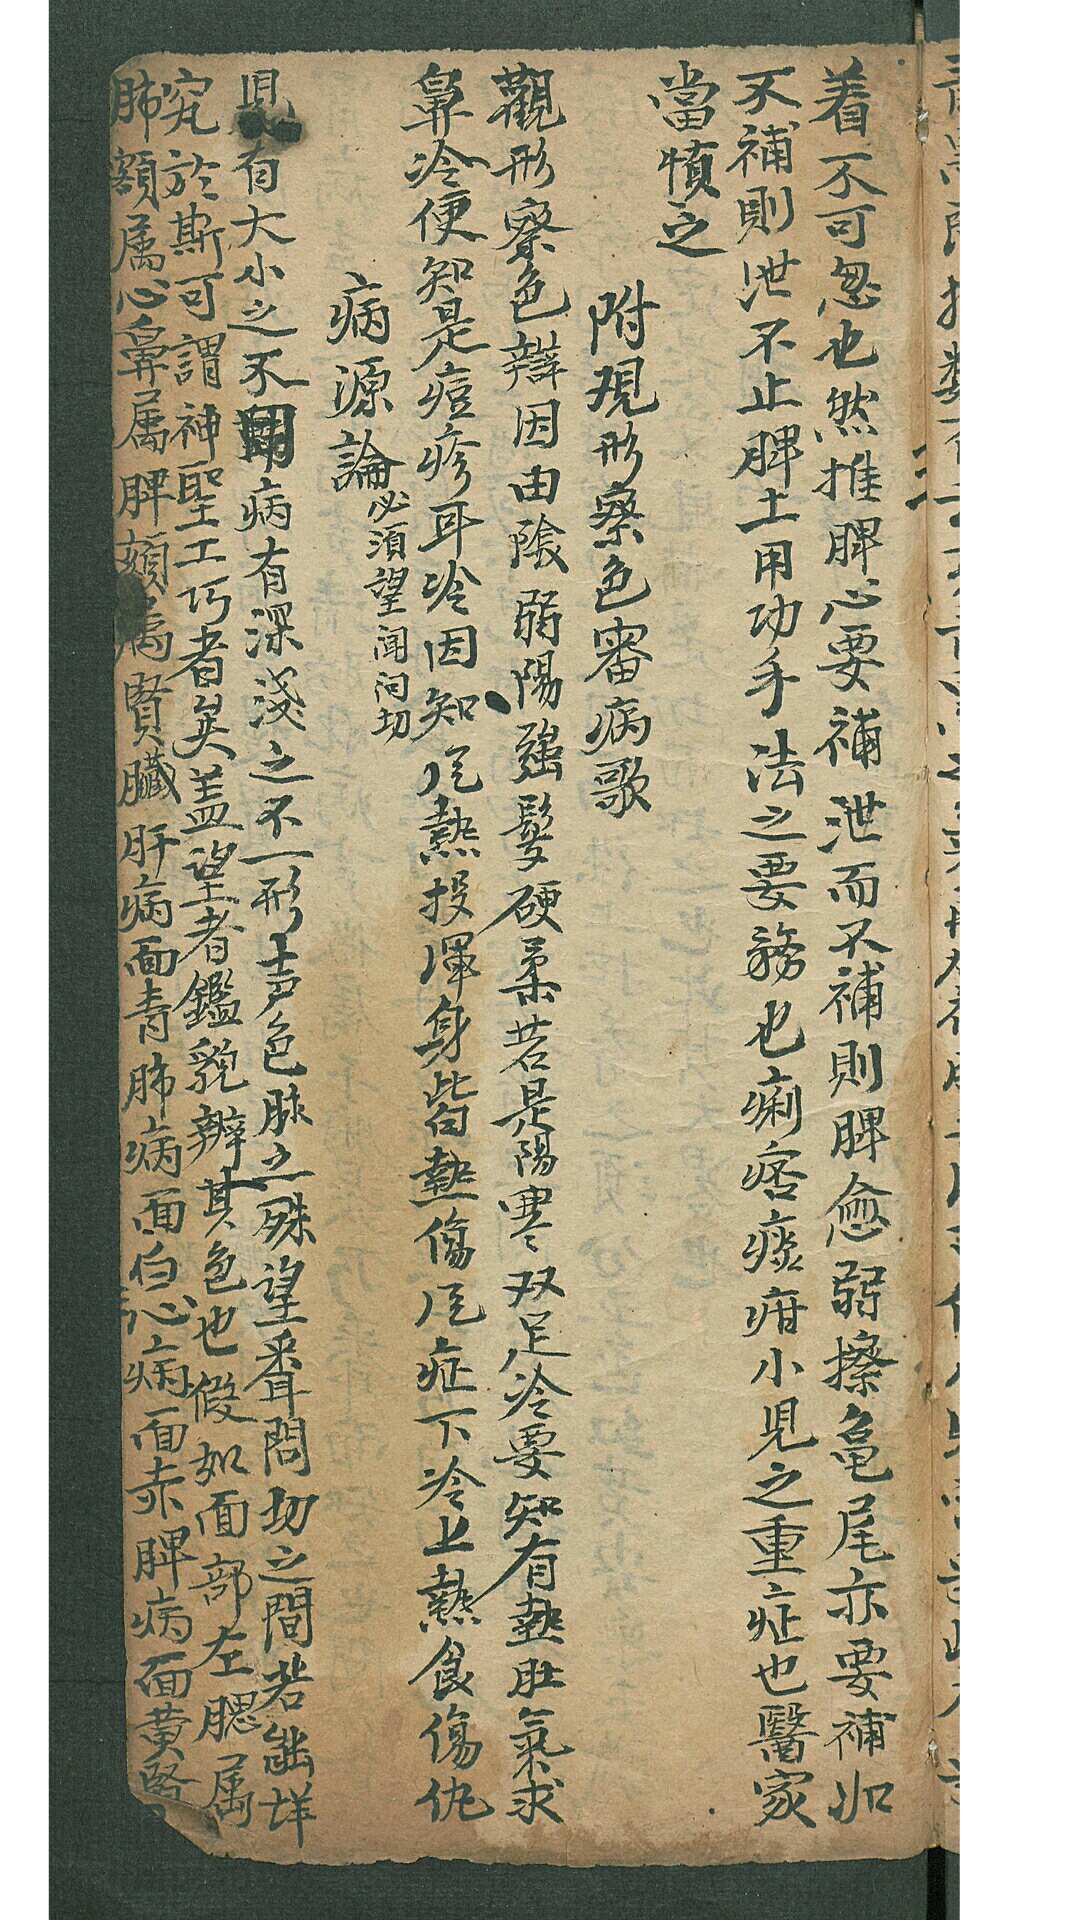 着不可忽也然推脾心要補泄而不補則脾愈弱擦龜尾亦要補如
不補則泄不止脾土用功手法之要務也痢痞痰疳小児之重症也醫家
當慎之
附現形察色審病歌
觀形察色辯因由陰弱陽強髮硬柔若是陽寒双足冷要知有熱肚氣求
鼻冷便知是痘疹耳冷因知風熱投渾身皆熱傷风症下冷上熱食傷仇
病源論必須望聞问切
児有大小之不同病有深淺之不一形声色脉之殊望聞問切之間若能详
究於斯可謂神聖工巧者矣盖望者鑑貌辨其色也假如面部左腮属
肺額属心鼻属脾頦属腎臟肝病面青肺病面白心病面赤脾病面黄腎